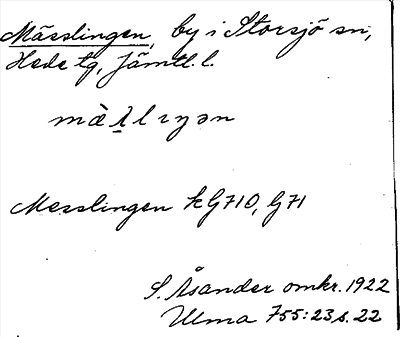 Mässlingen, by i Storsjö sn,
Hede tg, Jämtl. l.
Messlingen k G710, G71
S. Åsander omkr. 1922
Ulma 755:23 s. 22